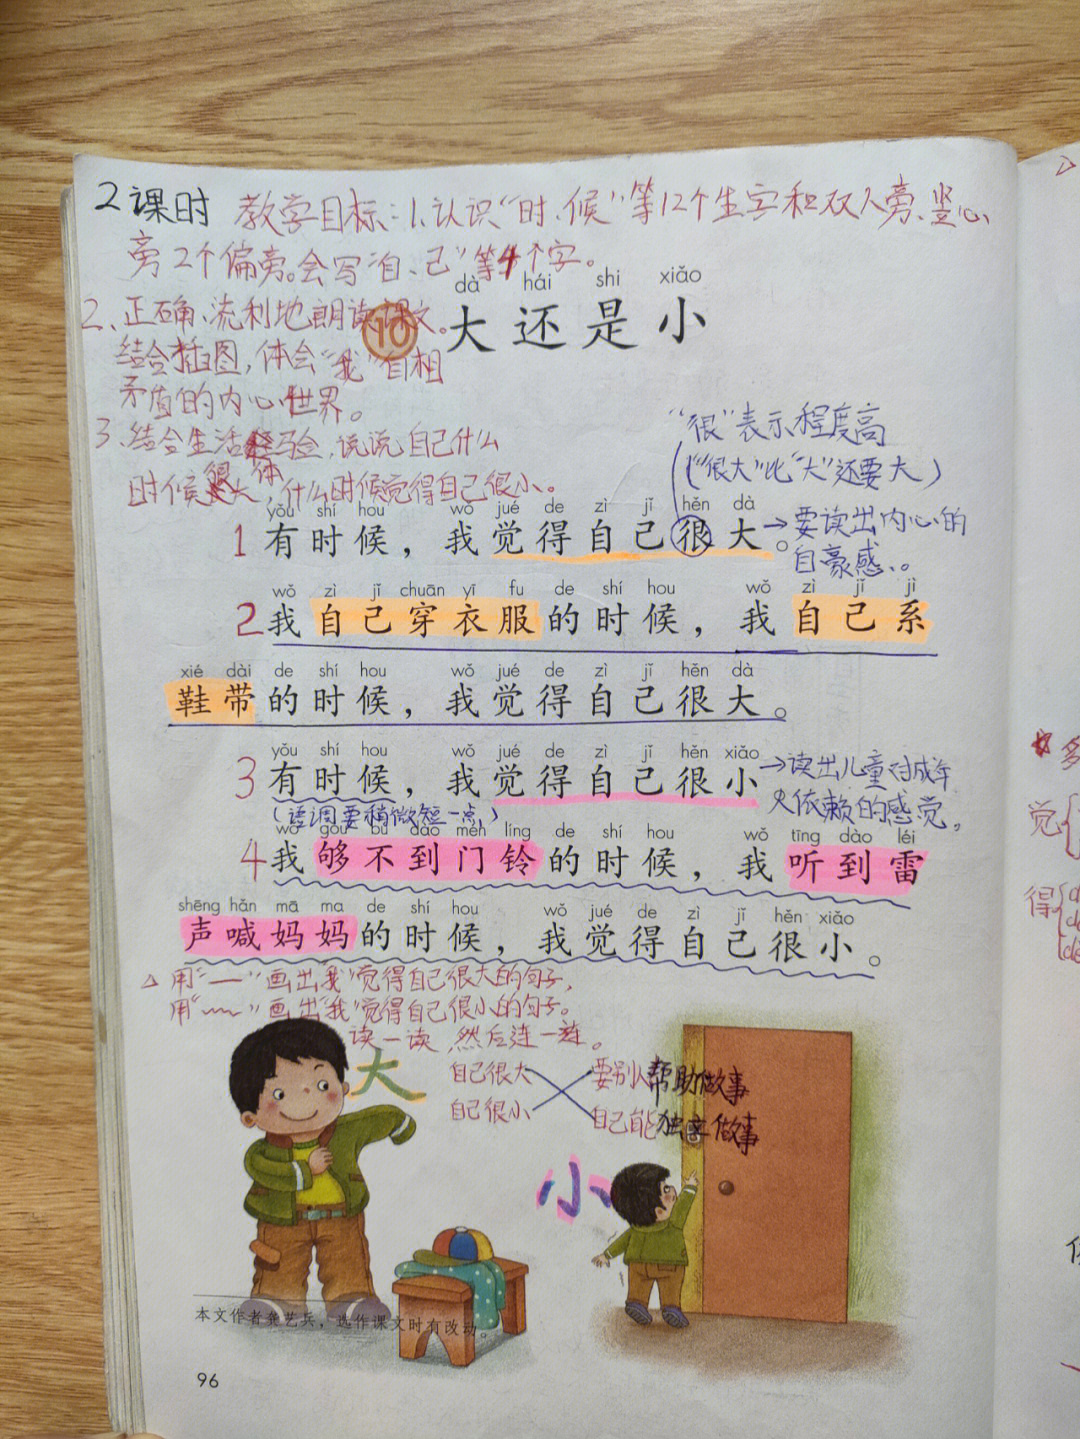 2课时 教学目标:1、认识"时、候"等12个生字和双人旁、竖心
旁2个偏旁。会写"自、己"等4个字。
2、正确、流利地朗读课文。
结合插图,体会"我"自相
矛盾的内心世界。
3、结合生活经验,说说自己什么
时候很大,什么时候觉得自己很小。
dà hái shi xiǎo
10 大还是小
"很"表示程度高
("很大"比"大"还要大)
yǒu shí hou wǒ jué de zì jǐ hěn dà
1 有时候,我觉得自己很大。
→要读出内心的
自豪感。
wǒ zì jǐ chuān yī fu de shí hou wǒ zì jǐ jì
2 我自己穿衣服的时候,我自己系
xié dài de shí hou wǒ jué de zì jǐ hěn dà
鞋带的时候,我觉得自己很大。
yǒu shí hou wǒ jué de zì jǐ hěn xiǎo
3 有时候,我觉得自己很小
→读出儿童对成年
人依赖的感觉。
(语调要稍微短一点)
wǒ gòu bú dào mén líng de shí hou wǒ tīng dào léi
4 我够不到门铃的时候,我听到雷
shēng hǎn mā ma de shí hou wǒ jué de zì jǐ hěn xiǎo
声喊妈妈的时候,我觉得自己很小。
△用"—"画出"我"觉得自己很大的句子,
用"﹏"画出"我"觉得自己很小的句子。
读一读,然后连一连。
大
自己很大 要别人帮助做事
自己很小 自己能独立做事
小
本文作者龚艺兵,选作课文时有改动。
96
多
觉
得